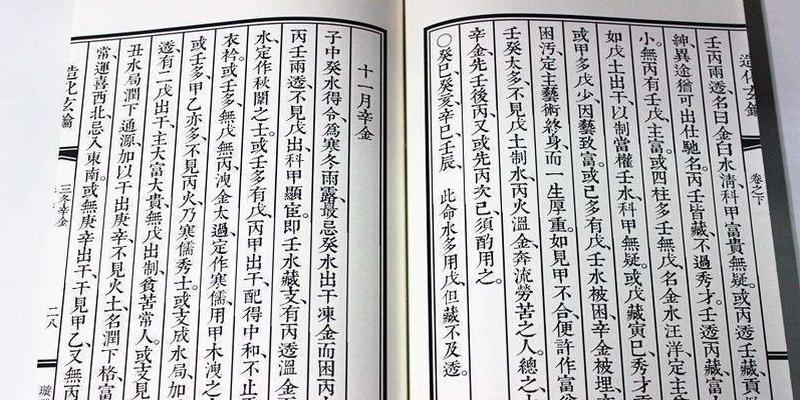 造化玄鑰
卷之下
壬丙兩透、名曰金白水清、科甲富貴無疑。或丙透壬藏、貢
紳、異途猶可出仕馳名。丙壬皆藏、不過秀才。壬透丙藏、富
小。無丙有壬戊主富。或四柱多壬無戊、名金水汪洋、定主
如戊土出干、以制當權壬水、科甲無疑。或戊藏寅巳、秀才
或甲多戊少、因藝致富。或己多有戊、壬水被困、辛金被埋、
困汚、定主藝術終身、而一生厚重。如見甲不合、便許作富
壬癸太多、不見戊土制水、丙火溫金、奔流勞苦之人。總之、
辛金先壬後丙、又或先丙次己、須酌用之。
○癸巳、癸亥、辛巳、壬辰、 此命水多用戊、但藏不及透。
十一月辛金
子中癸水得令、爲寒冬雨露、最忌癸水出干凍金、而困丙
丙壬兩透、不見戊出、科甲顯宦。即壬水藏支、有丙透溫金
水、定作秋闈之士。或壬多有戊、丙甲出干、配得中和、不止
衣衿。或壬多、無戊無丙、洩金太過、定作寒儒。用甲木洩之
或壬多、甲乙亦多、不見丙火、乃寒儒秀士。或支成水局、加
透、有二戊出干、主大富大貴。無戊出制、貧苦常人。或支見
丑水局、潤下通源、加以干出庚辛、不見火土、名潤下格、富
常、運喜西北、忌入東南。或無庚辛出干、干見甲乙、又無丙
造化玄鑰
三冬辛金
二八